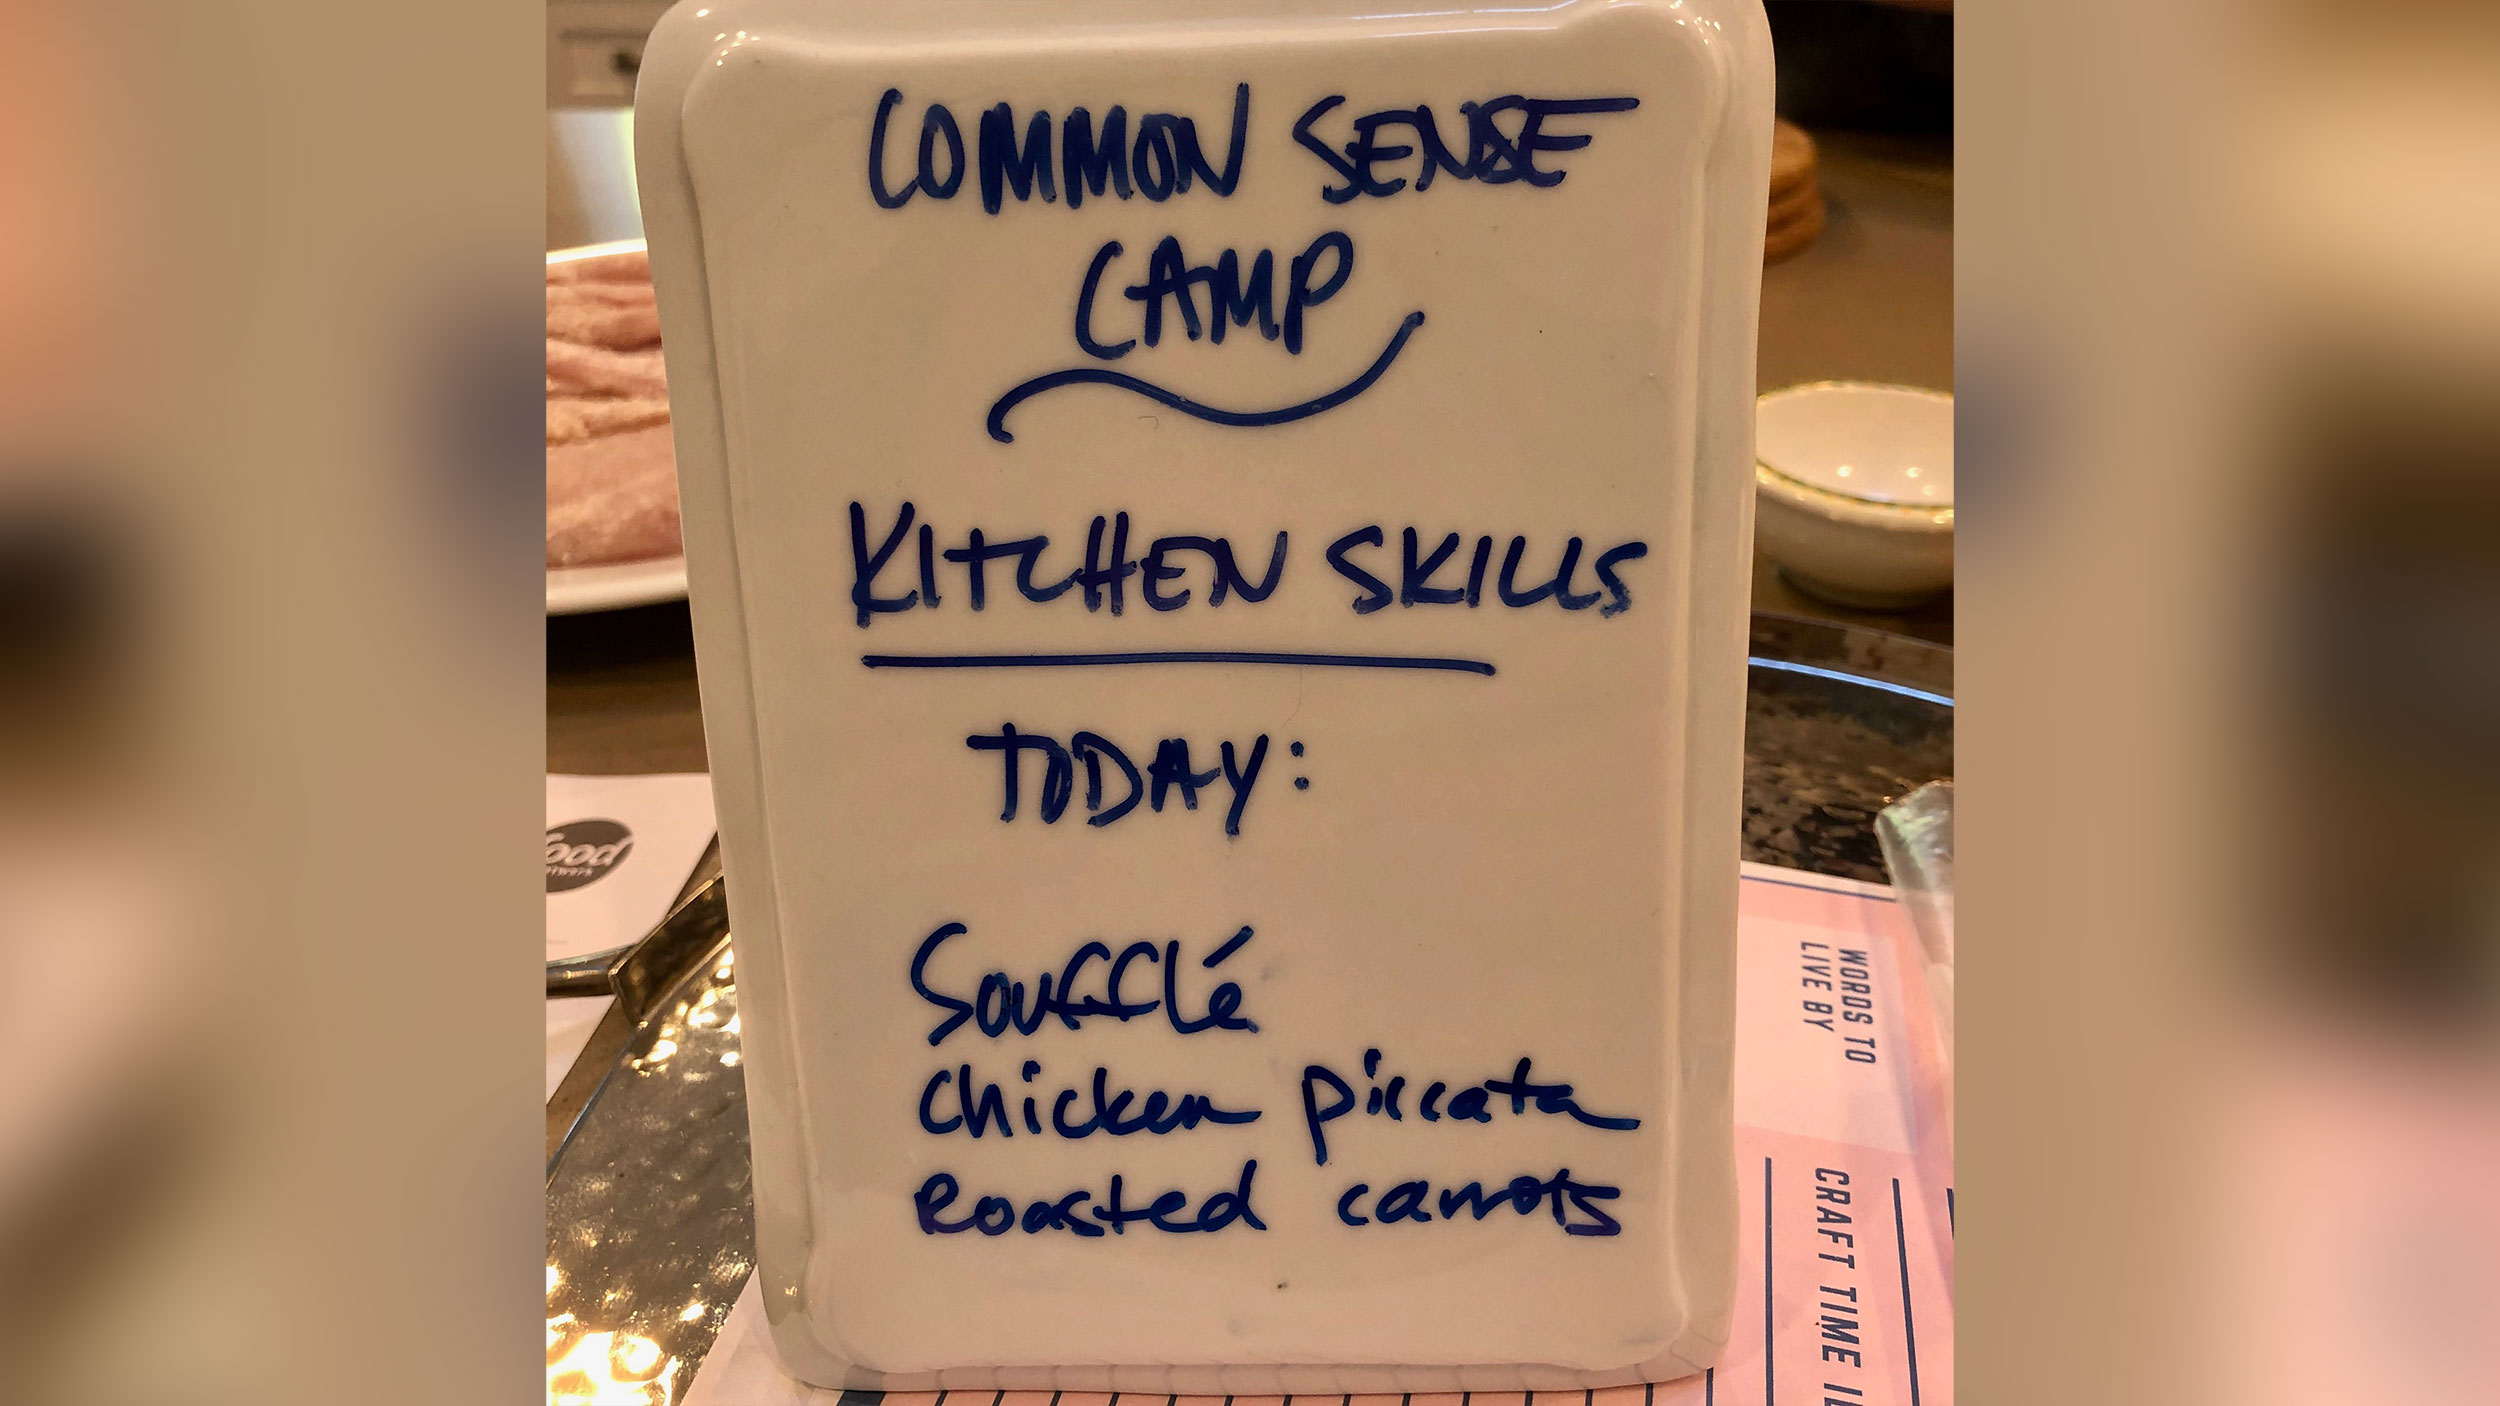 COMMON SENSE
CAMP
KITCHEN SKILLS
TODAY:
Soufflé
Chicken piccata
Roasted carrots
food
WORDS TO
LIVE BY
CRAFT TIME